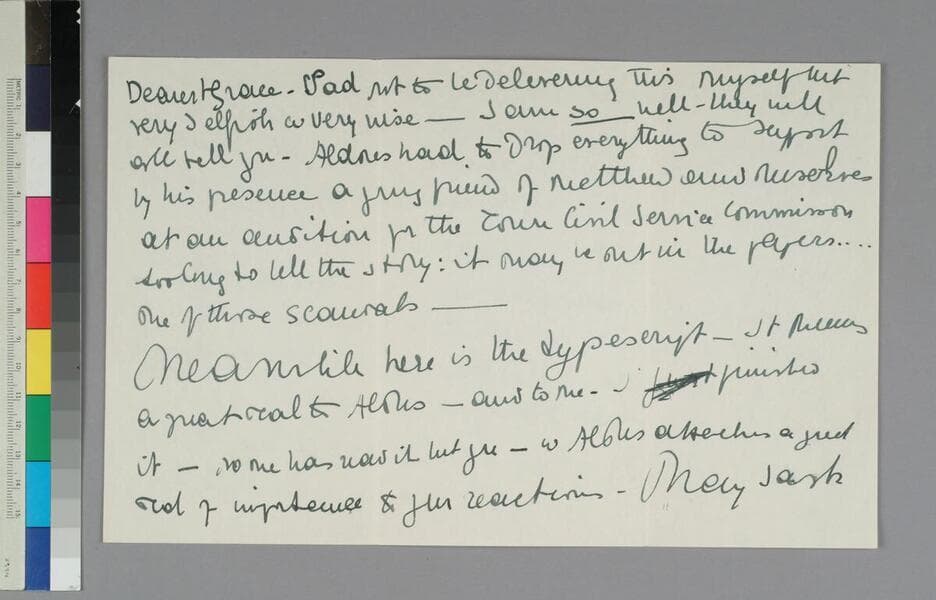 Dearest Grace - Sad not to be delivering this myself but
very selfish & very wise — I am so well - they will
all tell you - Aldous had to drop everything to support
by his presence a young friend of Matthew and ourselves
at an audition for the Town Civil Service Commission
too long to tell the story: it may be out in the papers....
one of those scandals —
Meanwhile here is the typescript - It means
a great deal to Aldous - and to me - I just finished
it - no one has read it but you - & Aldous attaches a great
deal of importance to your reactions - May I ask